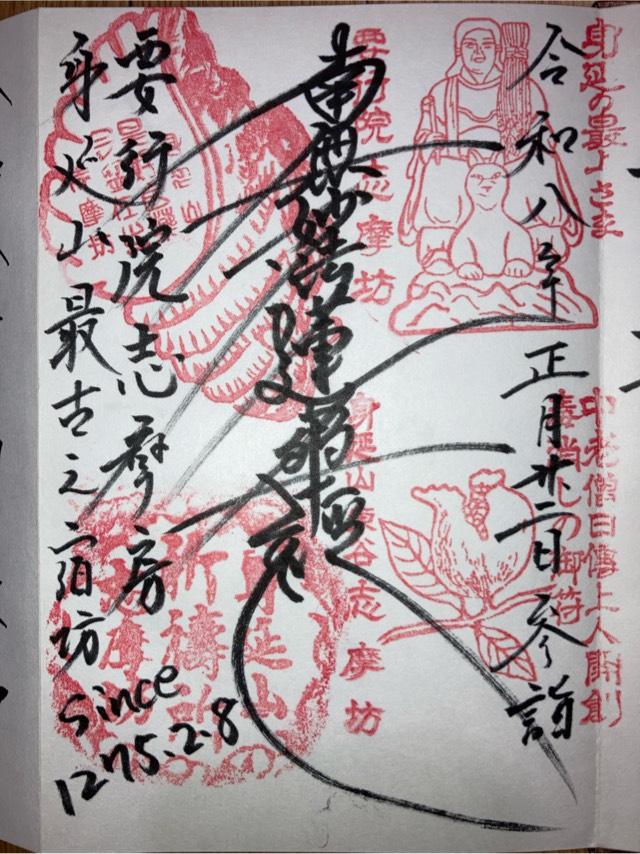 身延の最上さま
中老僧日傳上人開創
毒消しの御符
令和八年正月廿二日参詣
南無妙法蓮華経
要行院志摩坊
身延山東谷志摩坊
要行院志摩房
身延山最古之宿坊
since
1275.2.8
身延山の
祈祷所
志摩坊